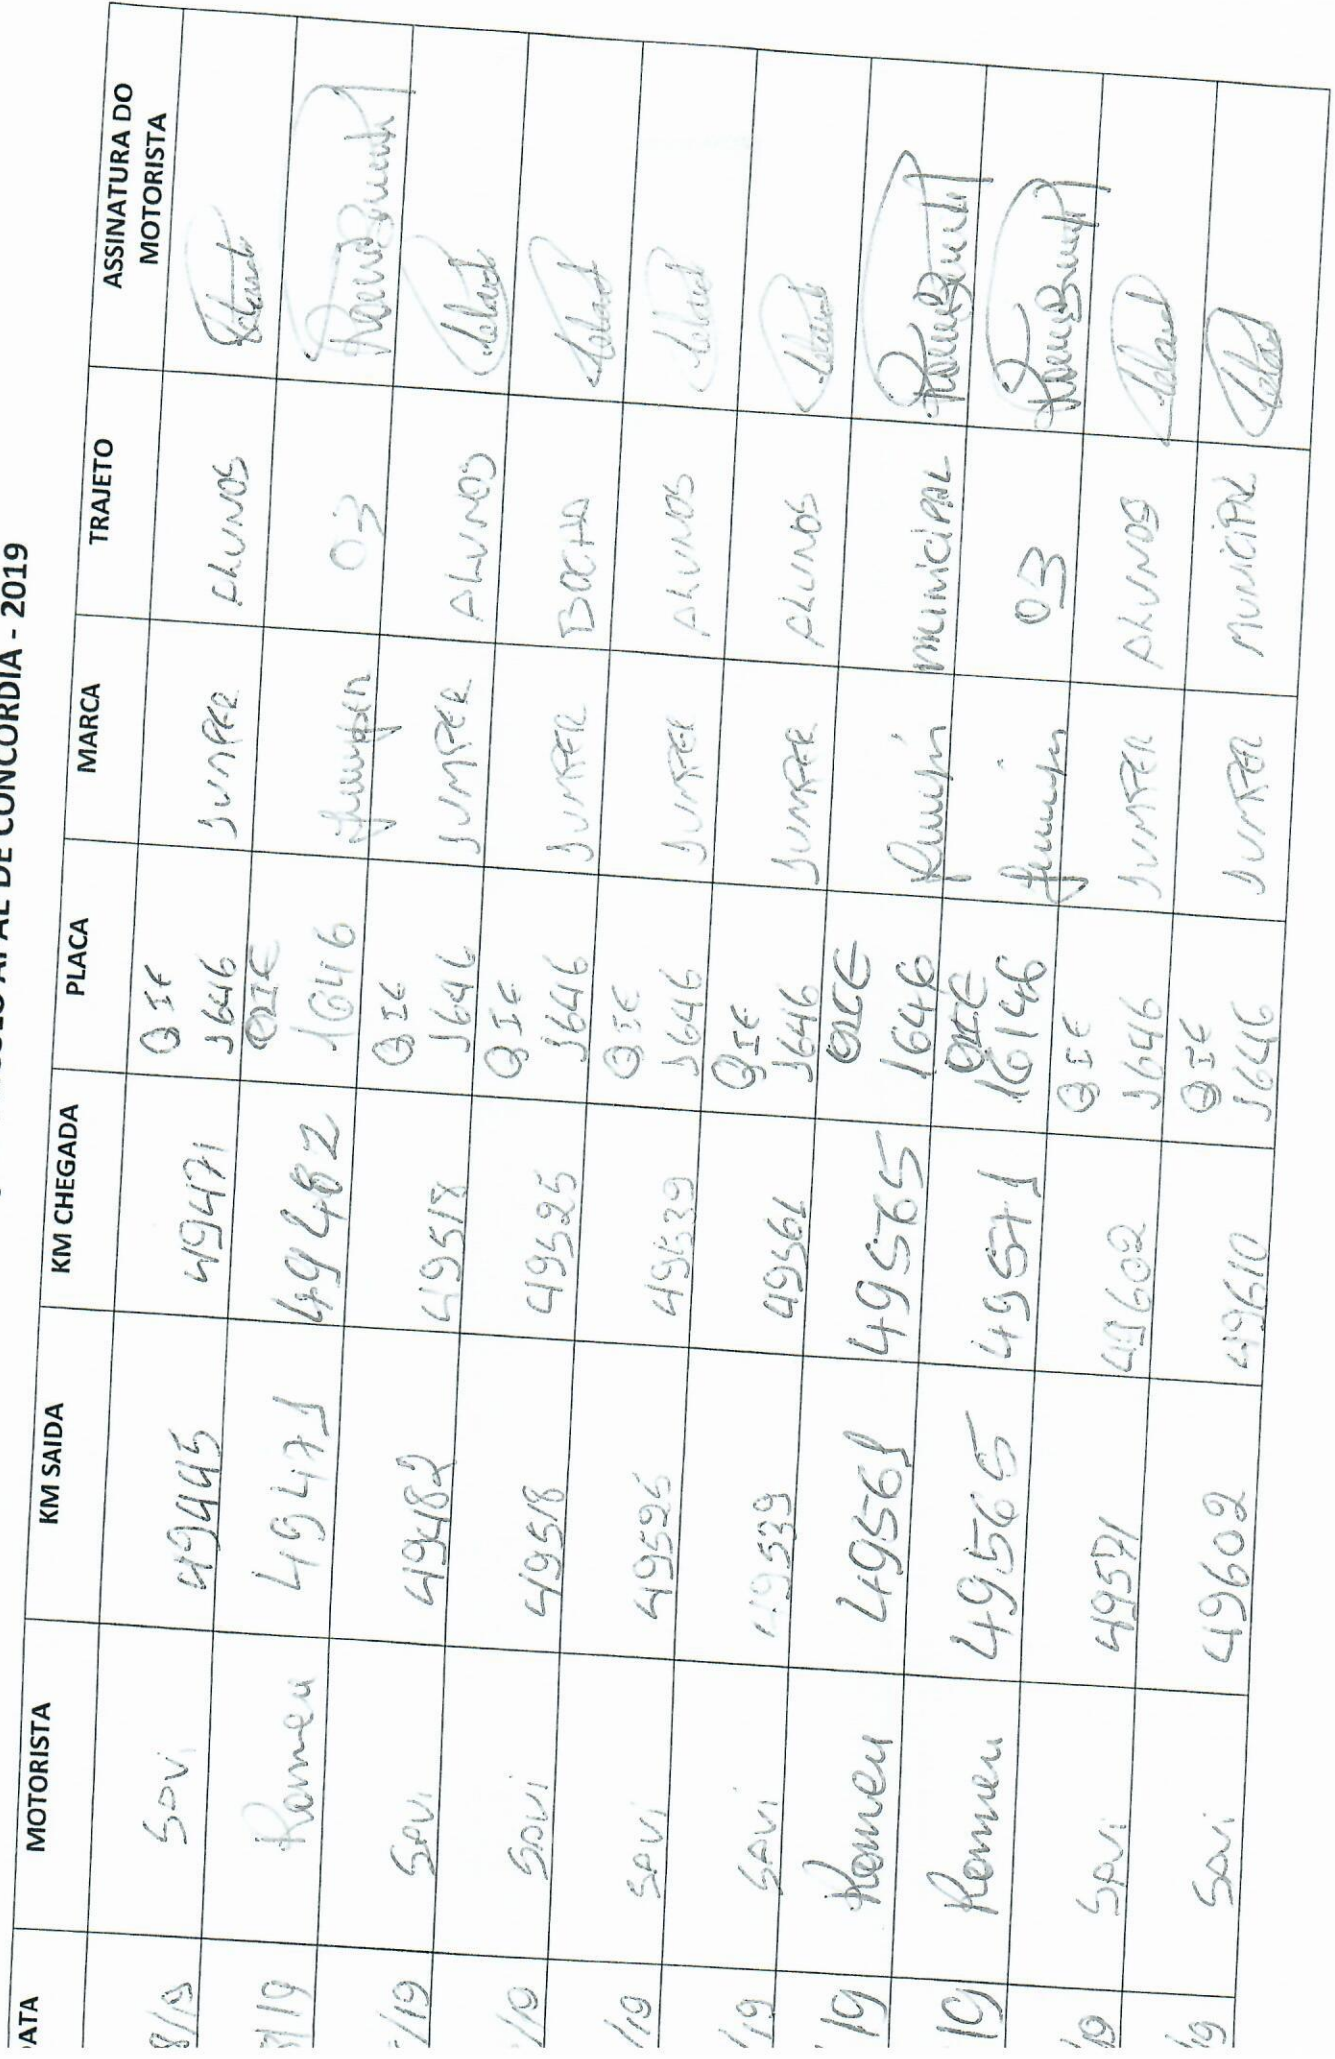 AL DE CONCÓRDIA - 2019
DATA MOTORISTA KM SAIDA KM CHEGADA PLACA MARCA TRAJETO ASSINATURA DO MOTORISTA
8/19 SAVI 49445 49471 QIE 1646 JUMPER ALUNOS
8/19 Romeu 49471 49482 QIE 1646 Jumper 03
/19 SAVI 49482 49518 QIE 1646 JUMPER ALUNOS
/19 SAVI 49518 49525 QIE 1646 JUMPER BOCHA
/19 SAVI 49525 49539 QIE 1646 JUMPER ALUNOS
/19 SAVI 49539 49561 QIE 1646 JUMPER ALUNOS
/19 Romeu 49561 49565 QIE 1646 MUNICIPAL
19 Romeu 49565 49571 QIE 16146 03
/19 SAVI 49571 49602 QIE 1646 JUMPER ALUNOS
/19 SAVI 49602 49610 QIE 1646 JUMPER MUNICIPAL